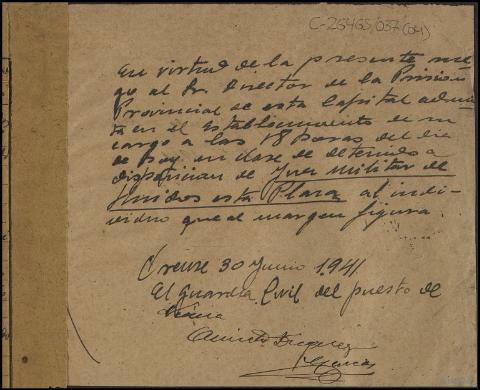 C-26465/037(04)
En virtud de la presente rue
go al Sr. Director de la Prision
Provincial de esta Capital admi
ta en el establecimiento de su
cargo a las 18 horas del dia
de hoy en clase de detenido a
disposicion de Juez Militar de
esta Plaza al indi-
viduo que al margen figura
Orense 30 Junio 1.941
El Guardia Civil del puesto de